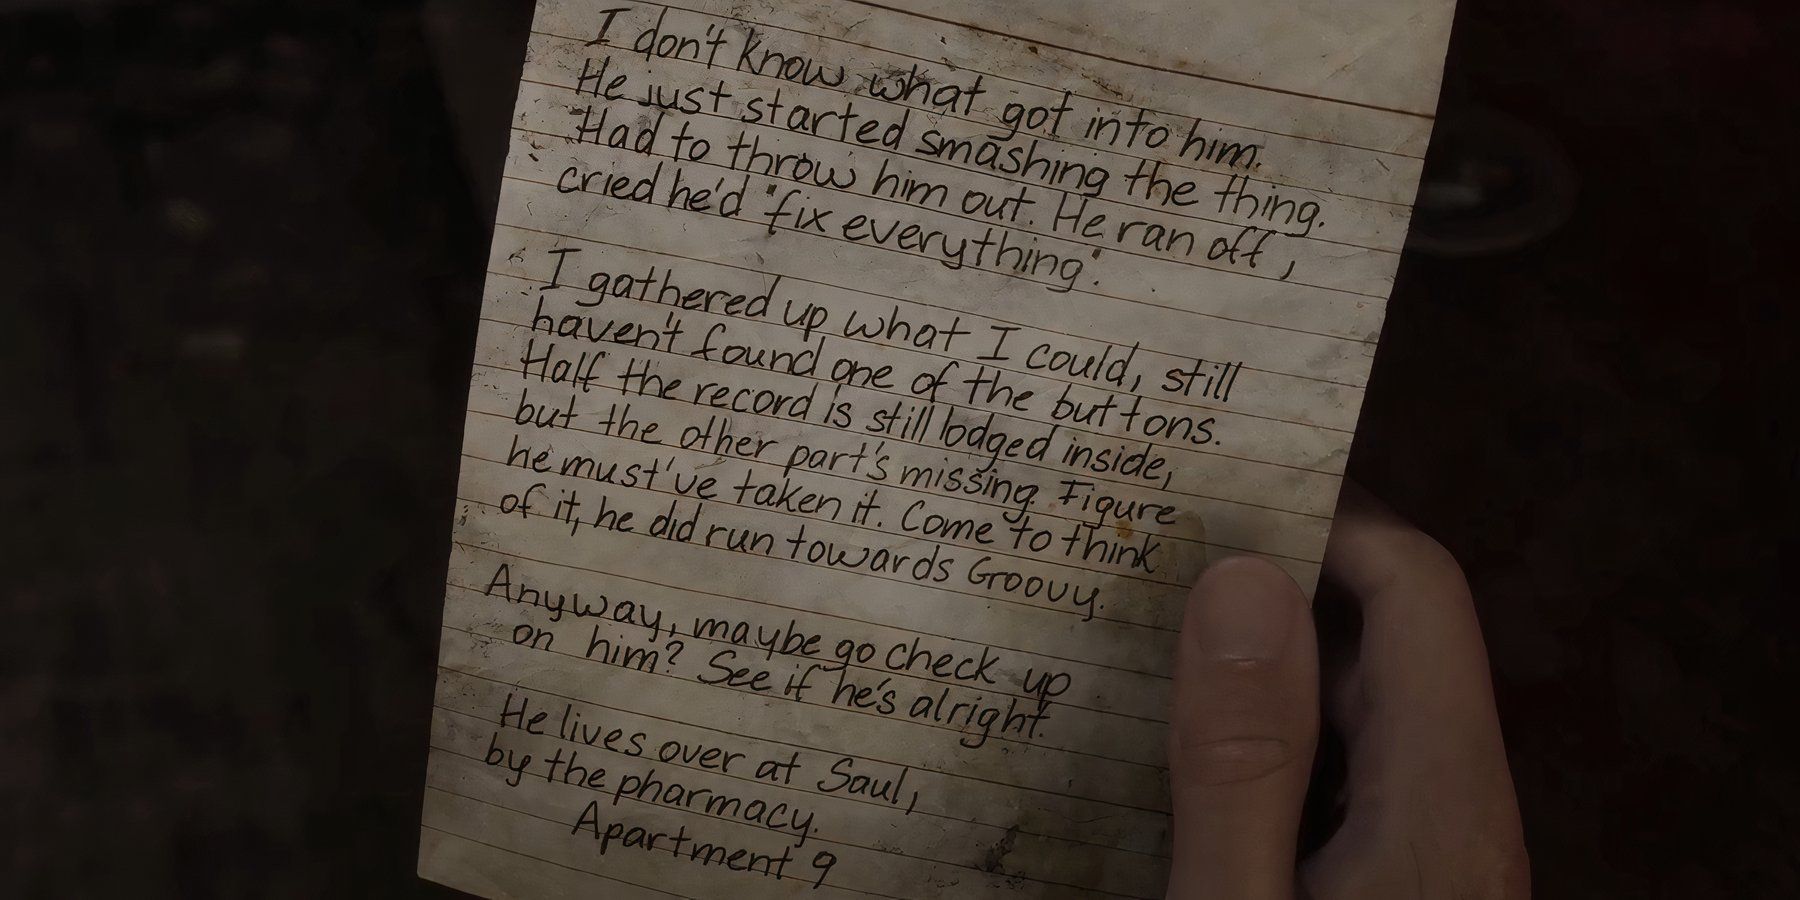 I don't know what got into him.
He just started smashing the thing.
Had to throw him out. He ran off,
cried he'd "fix everything".
I gathered up what I could, still
haven't found one of the buttons.
Half the record is still lodged inside,
but the other part's missing. Figure
he must've taken it. Come to think
of it, he did run towards Groovy.
Anyway, maybe go check up
on him? See if he's alright.
He lives over at Saul,
by the pharmacy.
Apartment 9